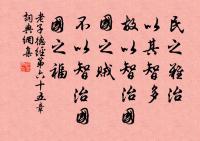 民之難治
以其智多
故以智治國
國之賊
不以智治國
國之福
老子德經第六十五章
詞典網集